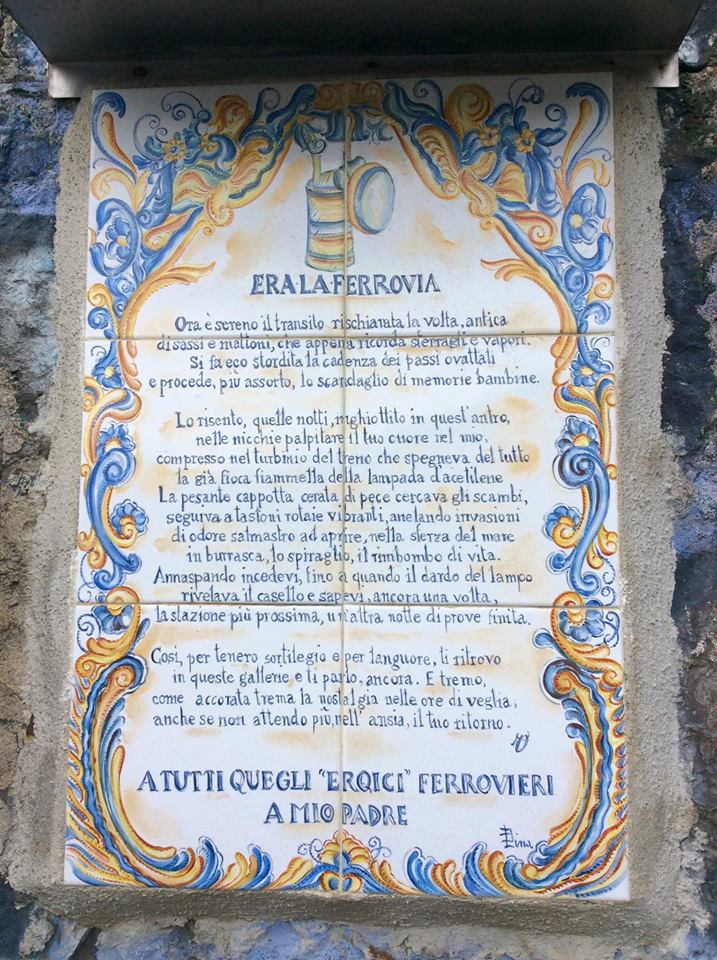 ERA LA FERROVIA
Ora è sereno il transito rischiarata la volta, antica
di sassi e mattoni, che appena ricorda sferragli e vapori.
Si fa eco stordita la cadenza dei passi ovattati
e procede, più assorto, lo scandaglio di memorie bambine.
Lo risento, quelle notti, inghiottito in quest'antro,
nelle nicchie palpitare il tuo cuore nel mio,
compresso nel turbinio del treno che spegneva del tutto
la già fioca fiammella della lampada d'acetilene
La pesante cappotta cerata di pece cercava gli scambi,
seguiva a tastoni rotaie vibranti, anelando invasioni
di odore salmastro ad aprire, nella sferza del mare
in burrasca, lo spiraglio, il rimbombo di vita.
Annaspando incedevi, fino a quando il dardo del lampo
rivelava il casello e sapevi, ancora una volta,
la stazione più prossima, un'altra notte di prove finita.
Così, per tenero sortilegio e per languore, ti ritrovo
in queste gallerie e ti parlo, ancora. E tremo,
come accorata trema la nostalgia nelle ore di veglia,
anche se non attendo più, nell'ansia, il tuo ritorno.
A TUTTI QUEGLI "EROICI" FERROVIERI
A MIO PADRE